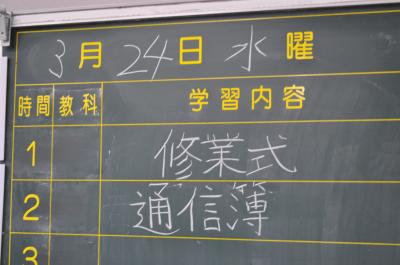 3月24日 水曜
時間 教科 学習内容
1 修業式
2 通信簿
3